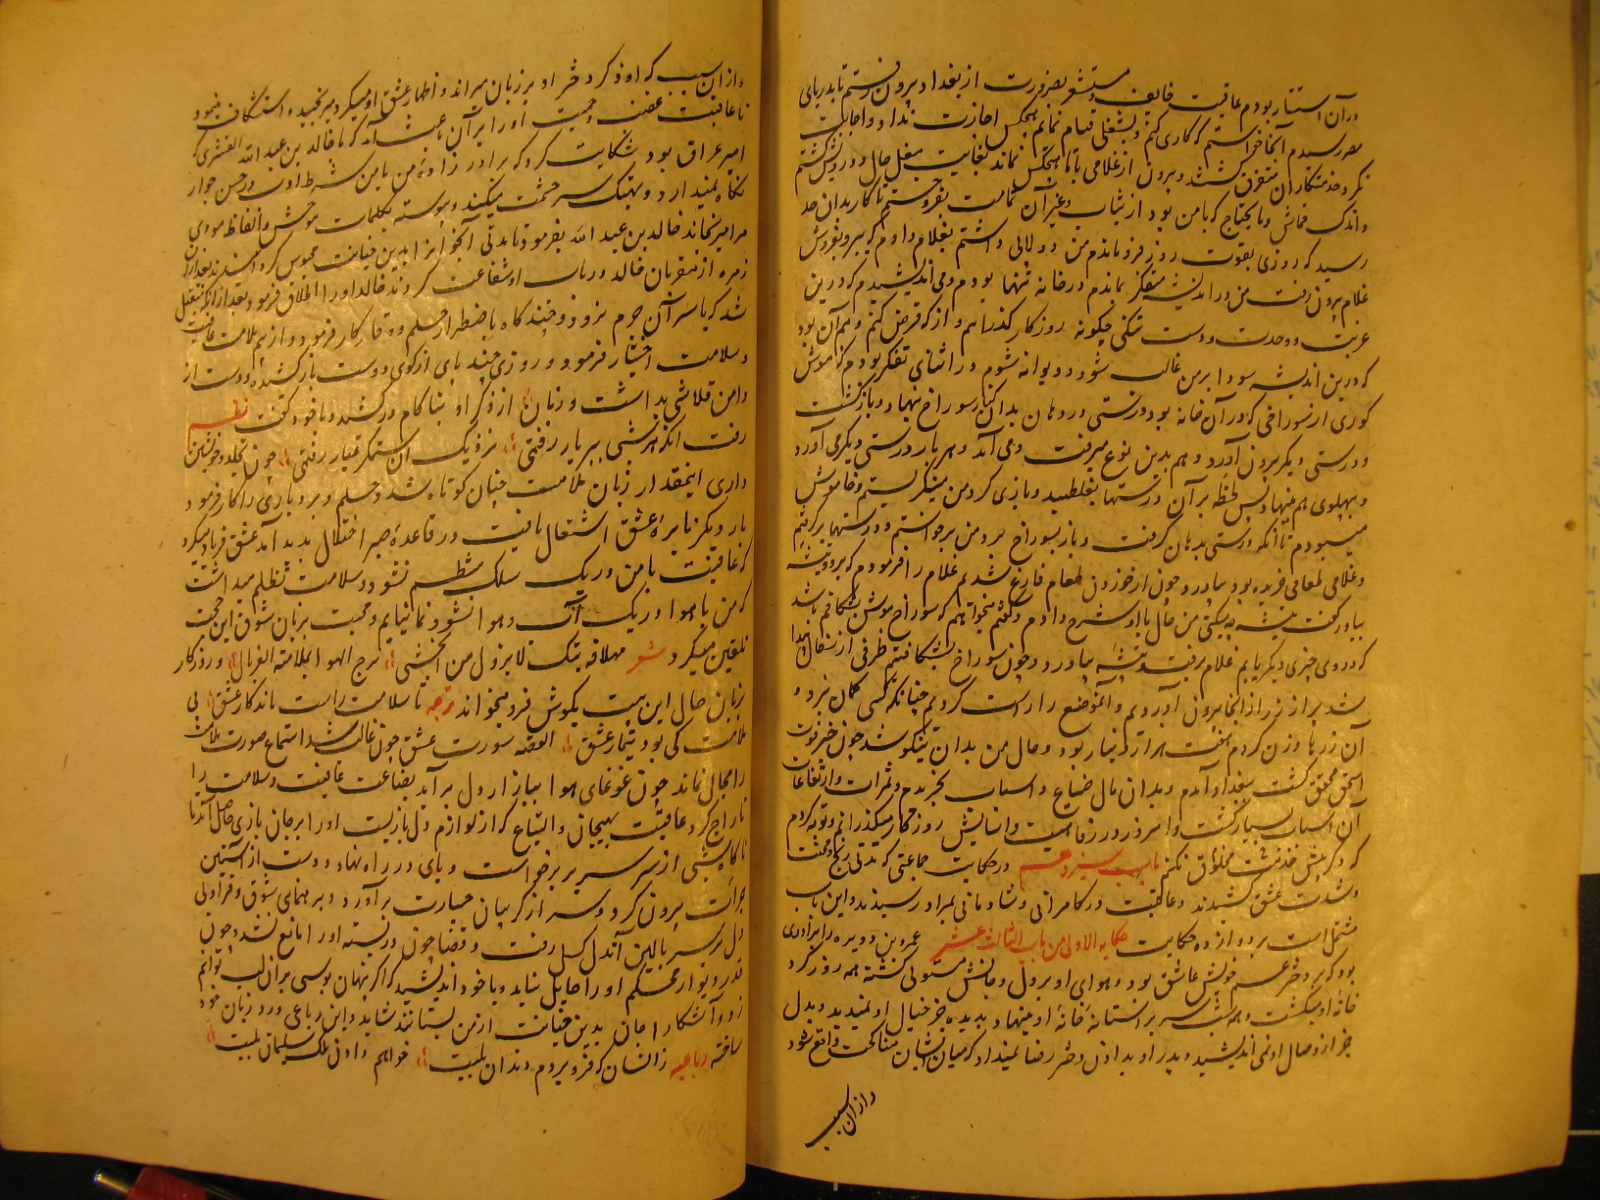 دران استتار بودم عاقبت خایف و مستشعر بضرورت از بغداد بیرون رفتم تا بدریای
مصر رسیدم آنجا خواستم که کاری کنم و بشغلی قیام نمایم هیچکس اجازت نداد و اجابت
نکرد و خدمتکاران متفرق شدند و بیرون از غلامی با ما هیچکس نماند بغایت حال و درویش گشتم
و اندک قماش و مایحتاج که با من بود از ثیاب و غیر آن تمامت بفروختم تا کار بدان حد
رسید که روزی بقوت روز فرو ماندم من دو لابی داشتم بغلام دادم که ببر و بفروش
غلام بیرون رفت من در اندیشه متفکر بماندم در خانه تنها بودم و می اندیشیدم که درین
غربت و وحدت و دست تنگی چگونه روزگار گذرانم و از که قرض کنم و بیم آن بود
که درین اندیشه سودا بر من غالب شود و دیوانه شوم در اثنای تفکر بودم که موش
کوری از سوراخی که در آن خانه بود درستی در دهان بدان کنار سوراخ نهاد و بازگشت
و درستی دیگر بیرون آورد و هم بدین نوع میرفت و می آمد و هر بار درستی دیگر می آورد
و بپهلوی هم مینهاد پس لحظه بر آن درستها بغلطید و بازی کرد من مینگریستم و خاموش
میبودم تا آنکه درستی بدهان گرفت و باز بسوراخ برد من برجستم و درستها برگرفتم
و غلامی طعامی خریده بود بیاورد چون از خوردن طعام فارغ شدیم غلام را فرمودم که برو تیشه
بیاور گفت تیشه چه میکنی من حال با او شرح دادم و گفتم میخواهم که سوراخ موش بشکافم باشد
که در وی چیزی دیگر یابم غلام برفت و تیشه بیاورد و چون سوراخ بشکافتیم ظرفی از سفال پیدا
شد پر از زر از آنجا بیرون آوردیم و آن موضع را راست کردیم چنانکه کسی گمان نبرد و
آن زر را وزن کردم هفت هزار دینار بود و حال من بدان نیکو شد چون خبر فوت
محقق گشت ببغداد آمدم و بدان مال ضیاع و اسباب بخریدم و ثمرات و ارتفاعات
آن اسباب بسیار گشت و امروز در رفاهیت و آسایش روزگار میگذرانم و توبه کردم
که دگر پیش خدمت مخلوق نکنم باب سیزدهم در حکایت جماعتی که مدتی رنج و محنت
و شدت عشق کشیدند و عاقبت در کامرانی و شادمانی بمراد رسیدند و این باب
مشتمل است بر دوازده حکایت حکایه الاولی من باب الثالث عشر عمرو بن دویره را برادری
بود که بر دختر عم خویش عاشق بود و هوای او بر دل و جانش مستولی گشته همه روز گرد
خانهٔ او میگشت و همه شب سر بر آستانهٔ خانهٔ او مینهاد بدیده جز خیال او نمیدید و بدل
جز از وصال او نمی اندیشید و پدر او بدادن دختر رضا نمیداد که میان ایشان مناکحت واقع شود
و از آن سبب
و از این سبب که او ذکر دختر او بر زبان میراند و اظهار عشق او میکرد میرنجید و استنکاف مینمود
تا عاقبت غضب و حمیت او را بر آن باعث آمد که با خالد بن عبد الله القسری که
امیر عراق بود شکایت کرد که برادرزادهٔ من با من شرط ادب و حسن جوار
نگاه نمیدارد و بهتک ستر حشمت میکند و پیوسته بکلمات موحش و الفاظ موذی
مرا میرنجاند خالد بن عبد الله بفرمود تا بدتی آنجوانرا بدین خیانت محبوس کردند بعد از آن
زمره از مقربان خالد در باب او شفاعت کردند خالد او را اطلاق فرمود بعد از آنکه متقبل
شد که با سر آن جرم نرود و چندگاه باضطرار حلم و وقار کار فرمود و از بیم ملامت عافیت
و سلامت اختیار فرمود و روزی چند پای از کوی دوست بازکشیده و دست از
دامن قلاشی بداشت و زبان از ذکر او بناکام درکشید و با خود گفت نظم
رفت آنکه نشنی بر یار رفتمی نزدیک آن ستمگر عیار رفتمی چون تجلد خویشتن
داری اینمقدار زبان ملامت چنان کوتاه شد و حلم و بردباری را کار فرمود
بار دیگر نایرهٔ عشق اشتعال یافت و در قاعدهٔ صبر اختلال پدید آمد عشق فریاد میکرد
که عافیت با من در یک سلک منتظم نشود و سلامت تظلم میداشت
که من با هوا در یک آب و هوا نشو و نما نیابم و محبت بزبان شوق این حجت
تلقین میکرد شعر مهلا فتک لا یزول من الحشی برح الهوا بملامة العزال و روزگار
بزبان حال این بیت بگوش فرو میخواند ترجمه تا سلامت راست باند کار عشق بی
ملامت کی بود تیمار عشق القصه سورت عشق چون غالب شد استماع صورت ملامت
را مجال نماند چون غوغای هوا ببازار دل برآید بضاعت عافیت و سلامت را
تاراج کرد عاقبت بهیجان و التیاع که از لوازم دل بازیست او را بر جان بازی حاصل آمد تا
ناگاه شبی از سر سریر برخواست و پای در راه نهاد و دست از آستین
جرأت بیرون کرد و سر از گریبان جسارت برآورد و برهنمای شوق و قراولی
دل بر سر بالین آن دل گسل رفت و قضا چون در بسته او را مانع نشد و چون
قدر دیوار محکم او را حایل نیاید و با خود اندیشید که اگر پنهان بوسی بر آن لب توانم
زد و آشکارا جان بدین خیانت از من بستانند شاید و این رباعی ورد زبان خود
ساخته رباعیه زانسان که فرو بردم دندان بلبیت خواهم دادن ملک سلیمان بلبیت